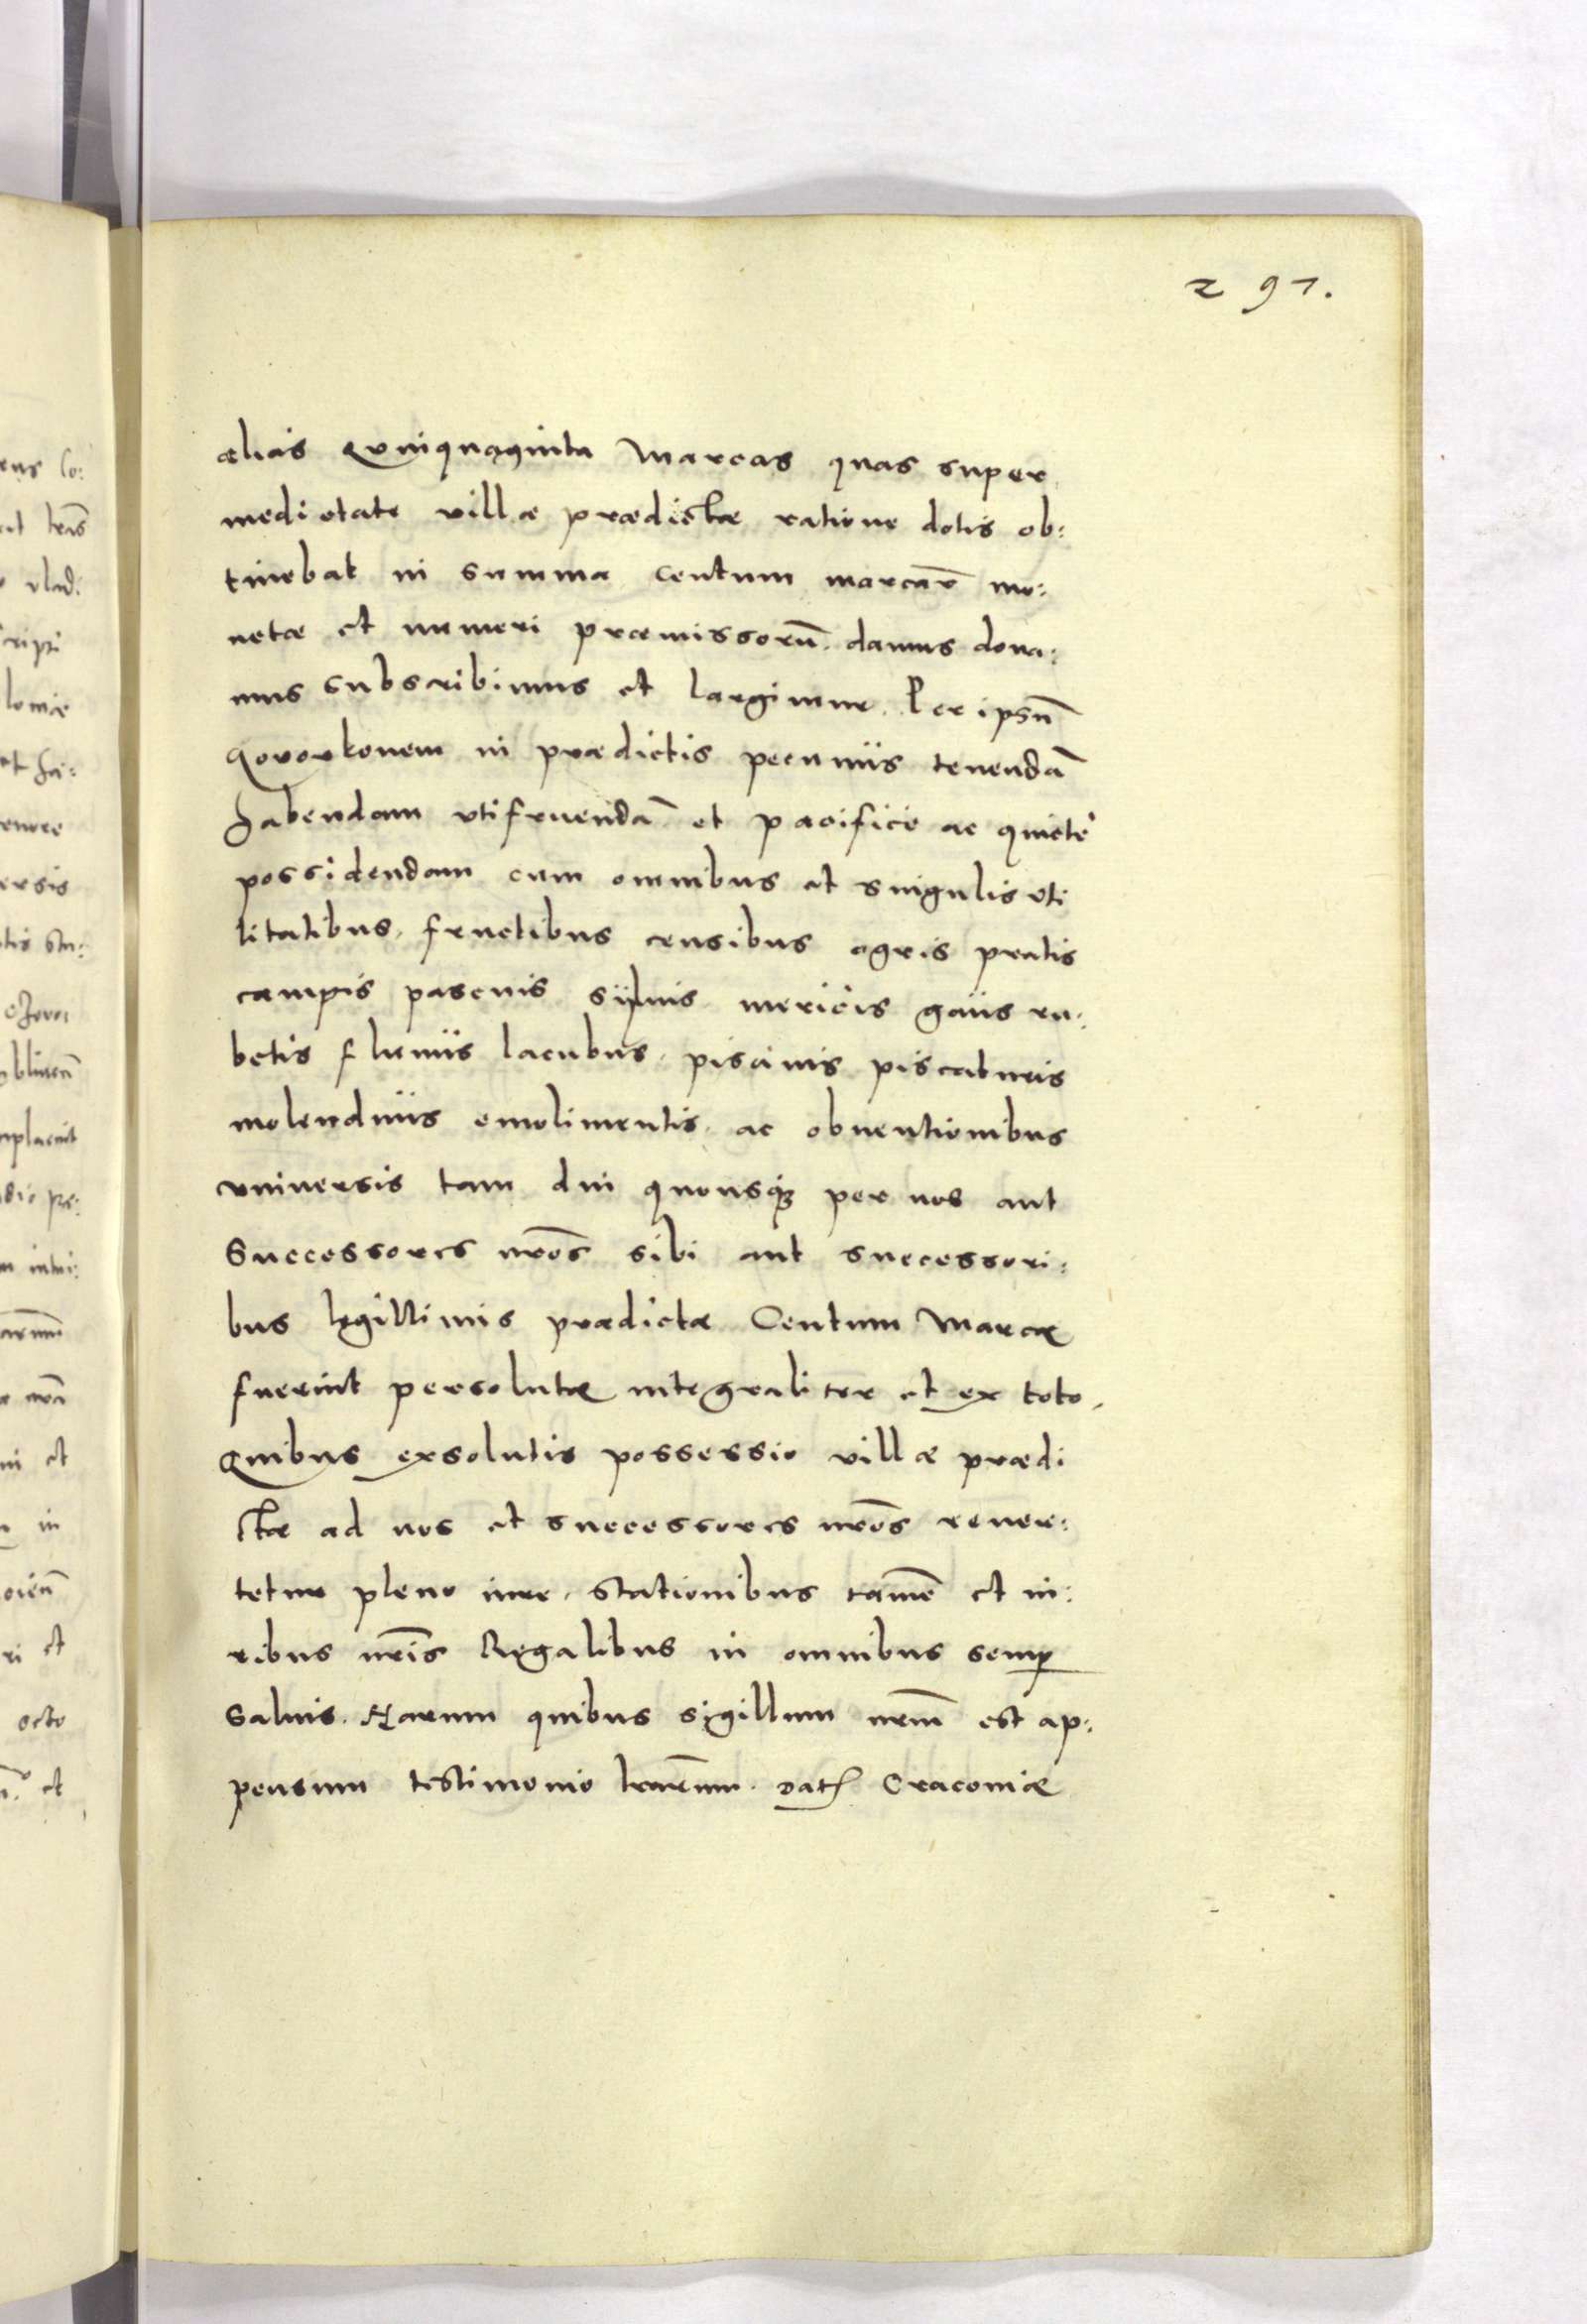 291.
alias Quinquaginta Marcas quas super
medietate villæ prædictæ ratione dotis ob:
tinebat in summa centum marcar̄ mo:
netæ et numeri præmissorū. damus dona:
mus subscribimus et largimur. Per ipsū
Govorkonem in prædictis pecuniis tenendā
habendam vtifruendā et pacificè ac quietè
possidendam cum omnibus et singulis vti
litatibus, fructibus censibus agris pratis
campis pascuis syluis mericis gaiis ru:
betis fluuiis lacubus, piscinis piscaturis
molendinis emolimentis, ac obuentionibus
vniuersis tam diu quousq; per nos aut
Successores nr̄os sibi aut successori:
bus legittimis prædictæ Centum Marcæ
fuerint persolutæ integraliter et ex toto,
Quibus exsolutis possessio villæ prædi
ctæ ad nos et successores nr̄os reuer:
tetur pleno iure, stationibus tamē et iu:
ribus nr̄is Regalibus in omnibus semp
Saluis. Harum quibus sigillum nr̄m est ap:
pensum testimonio lr̄arum. Dat Cracouiæ